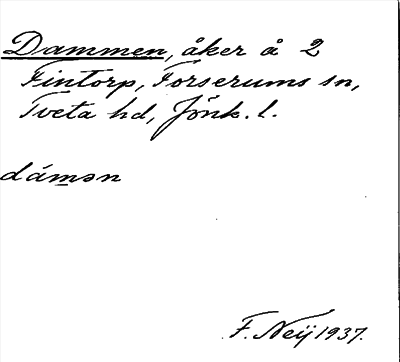 Dammen, åker å 2
Fintorp, Forserums sn,
Tveta hd, Jönk. l.
dámən
F. Neij 1937.